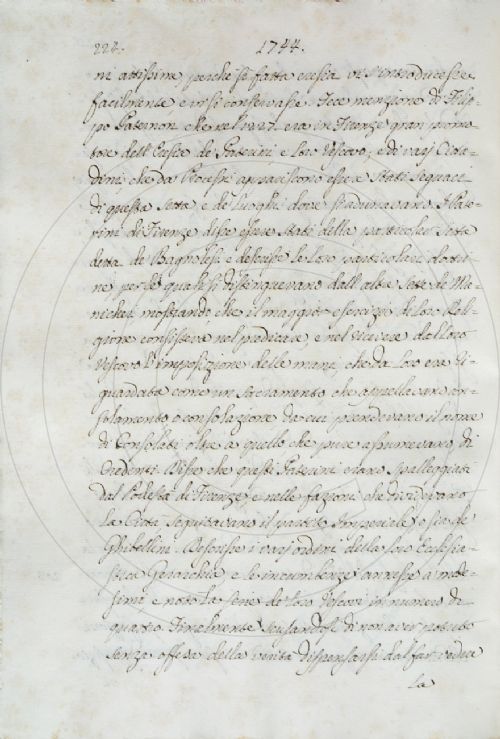 224. 1744.
ni attissime, perche sì fatta eresia vi s'introducesse
facilmente e vi si conservasse. Fece menzione di Filip-
po Paternon che nel in Firenze gran promo-
tore dell'Eresia de' Paterini e loro Vescovo, e di varj Citta-
dini che da Processi appariscono essere stati seguaci
di questa setta e de' luoghi dove s'adunavano. I Pate-
rini di Firenze disse essere stati della particolar setta
detta de' Bagnolesi, e descrisse le loro particolari dottri-
ne per le quali si distinguevano dall'altre sette de' Ma-
nichei mostrando che il maggior esercizio di loro Reli-
gione consisteva nel predicare, e nel ricevere dal loro
Vescovo l'imposizione delle mani, che da loro era ri-
guardata come un Sacramento che appellavano con-
solamento o consolazione da cui prendevano il nome
di Consolati oltre a quello che pure assumevano di
Credenti. Disse che questi Paterini erano spalleggiati
dal Podestà di Firenze, e nelle fazioni che dividevano
la Città seguitavano il partito Imperiale o sia de'
Ghibellini. Descrisse i varj ordini della loro Ecclesia-
stica Gerarchia e le incumbenze annesse a mede-
simi e notò la serie de' loro Vescovi in numero di
quattro. Finalmente scusandosi di non aver potuto
senza offesa della verità dispensarsi dal far vedere
la